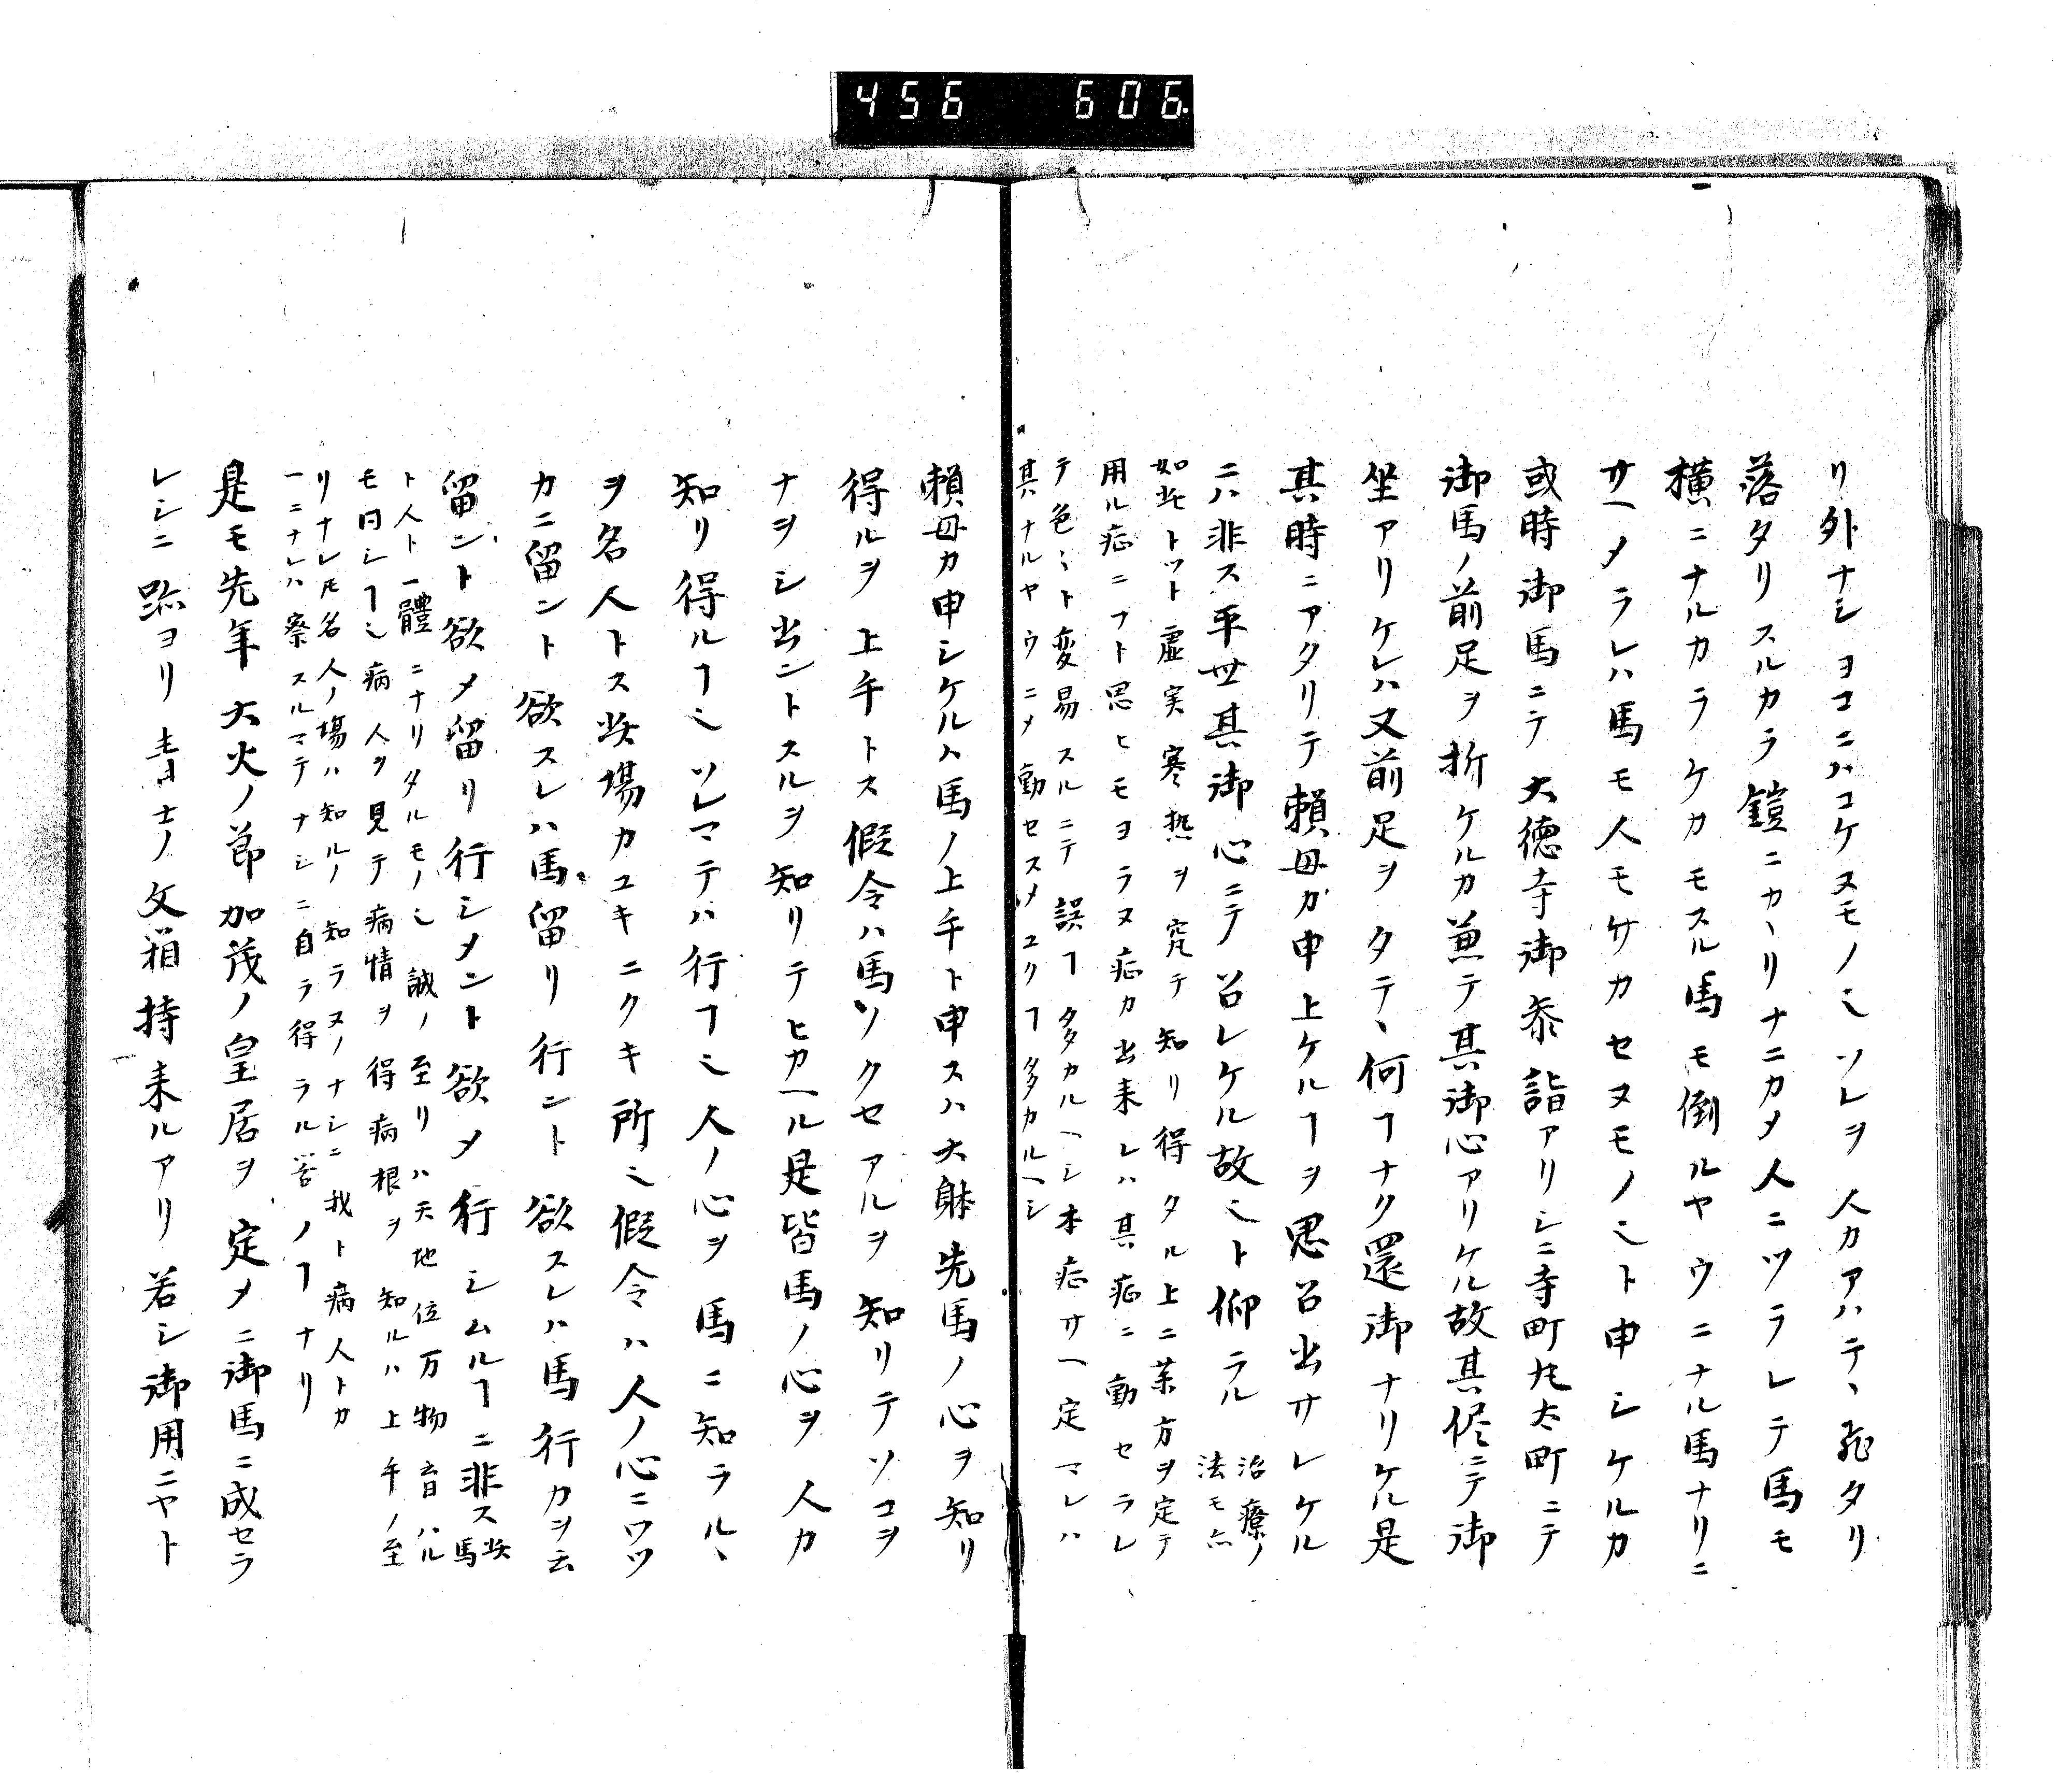 456 606
リ外ナシヨコニハコケヌモノ也ソレヲ人カアハテヽ飛タリ
落タリスルカラ鐙ニカヽリナニカメ人ニツラレテ馬モ
横ニナルカラケカモスル馬モ倒ルヤウニナル馬ナリニ
サヘメラレハ馬モ人モケカセヌモノ也ト申シケルカ
或時御馬ニテ大徳寺御参詣アリシニ寺町丸太町ニテ
御馬ノ前足ヲ折ケルカ兼テ其御心アリケル故其侭ニテ御
坐アリケレハ又前足ヲタテヽ何ヿナク還御ナリケル是
其時ニアタリテ頼母カ申上ケルヿヲ思召出サレケル
ニハ非ス平世其御心ニテ召レケル故也ト仰ラル
治療ノ
法モ亦
如此トツト虚実寒熱ヲ究テ知リ得タル上ニ薬方ヲ定テ
用ル症ニフト思ヒモヨラヌ症カ出来レハ其症ニ動セラレ
テ色〻ト変易スルニテ誤ヿ多カルヘシ本症サヘ定マレハ
其ハナルヤウニメ動セスメユクヿ多カルヘシ
頼母カ申シケルハ馬ノ上手ト申スハ大躰先馬ノ心ヲ知リ
得ルヲ上手トス假令ハ馬ソクセアルヲ知リテソコヲ
ナヲシ出ントスルヲ知リテヒカヘル是皆馬ノ心ヲ人カ
知リ得ルヿ也ソレマテハ行ヿ也人ノ心ヲ馬ニ知ラルヽ
ヲ名人トス此場カユキニクキ所也假令ハ人ノ心ニワツ
カニ留ント欲スレハ馬留リ行ント欲スレハ馬行カヲ云
留ント欲メ留リ行シメント欲メ行シムルヿニ非ス
此馬
ト人ト一體ニナリタルモノ也誠ノ至リハ天地位万物育ハル
モ同シヿ也病人ヲ見テ病情ヲ得病根ヲ知ルハ上手ノ至
リナレ𪜈名人ノ場ハ知ルノ知ラヌノナシニ我ト病人トカ
一ニナレハ察スルマテナシニ自ラ得ラル筈ノヿナリ
是モ先年大火ノ節加茂ノ皇居ヲ定メニ御馬ニ成セラ
レシニ跡ヨリ士ノ文箱持来ルアリ若シ御用ニヤト